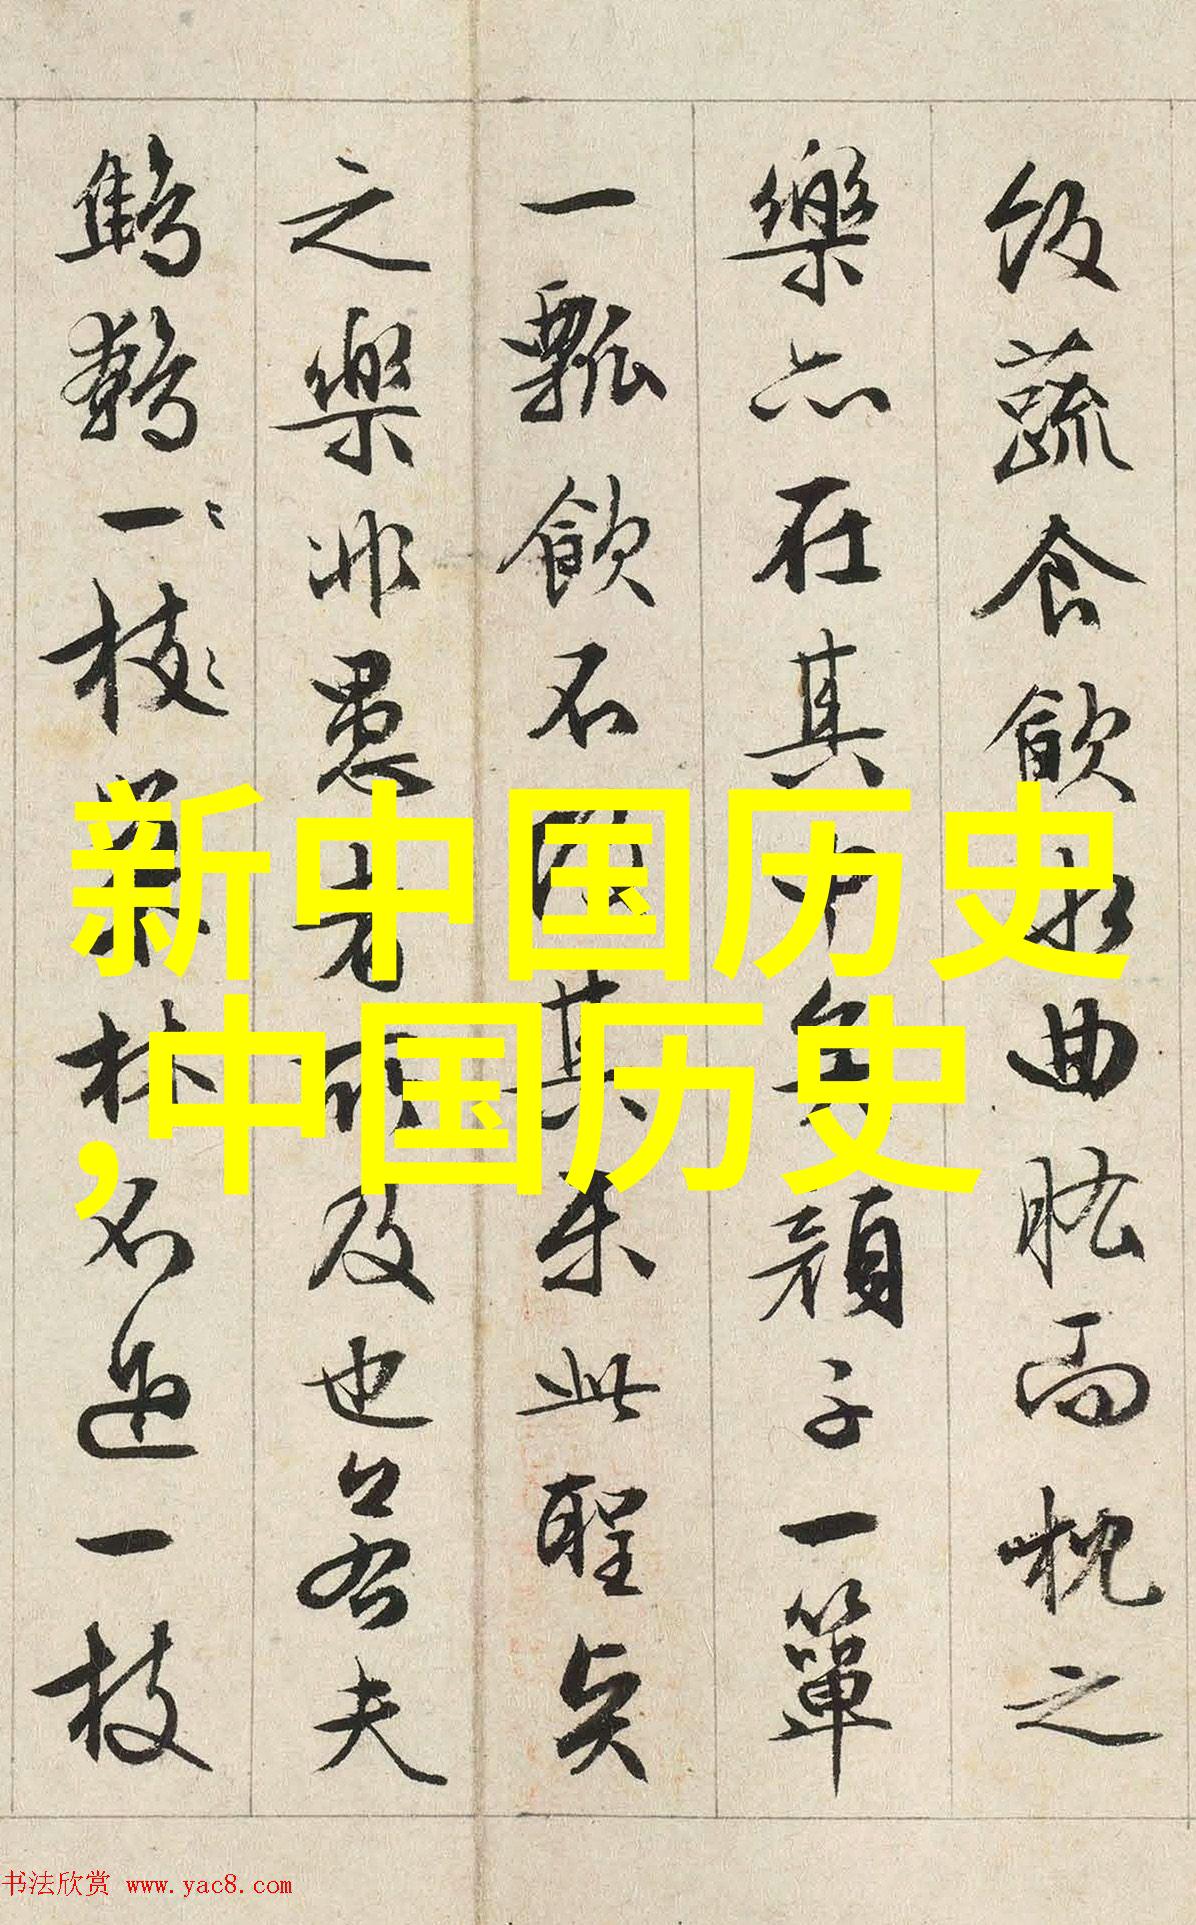 飯蔬食飲水曲肱而枕之
樂亦在其中矣顏子一簞
一瓢飲不改其樂此聖賢
之樂非愚者所及也若夫
鷦鷯一枝巢林不過一枝
新中国历史
,中国历史
书法欣赏 www.yac8.com